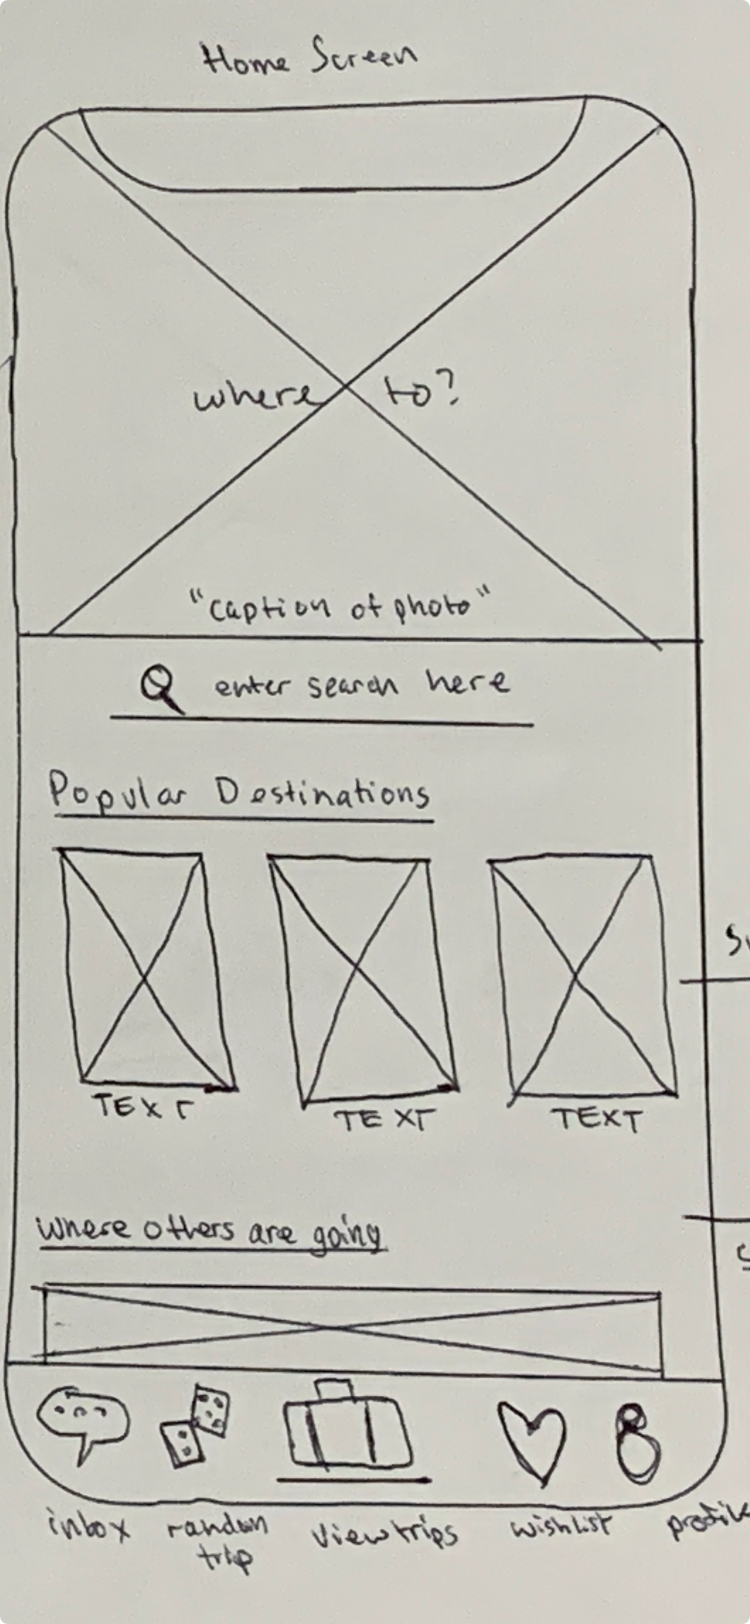 Home Screen
where to?
"caption of photo"
enter search here
Popular Destinations
TEXT TEXT TEXT
where others are going
inbox random trip view trips wishlist